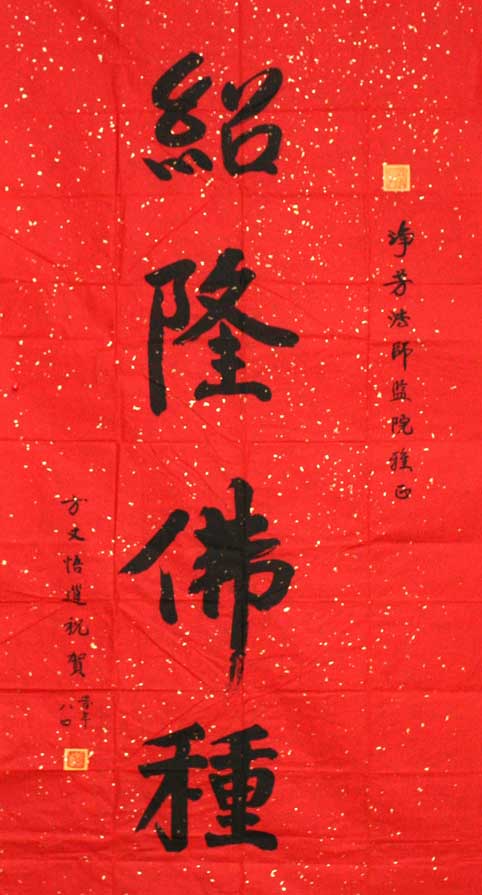 淨芳法師監院雅正
紹隆佛種
方丈悟祝賀